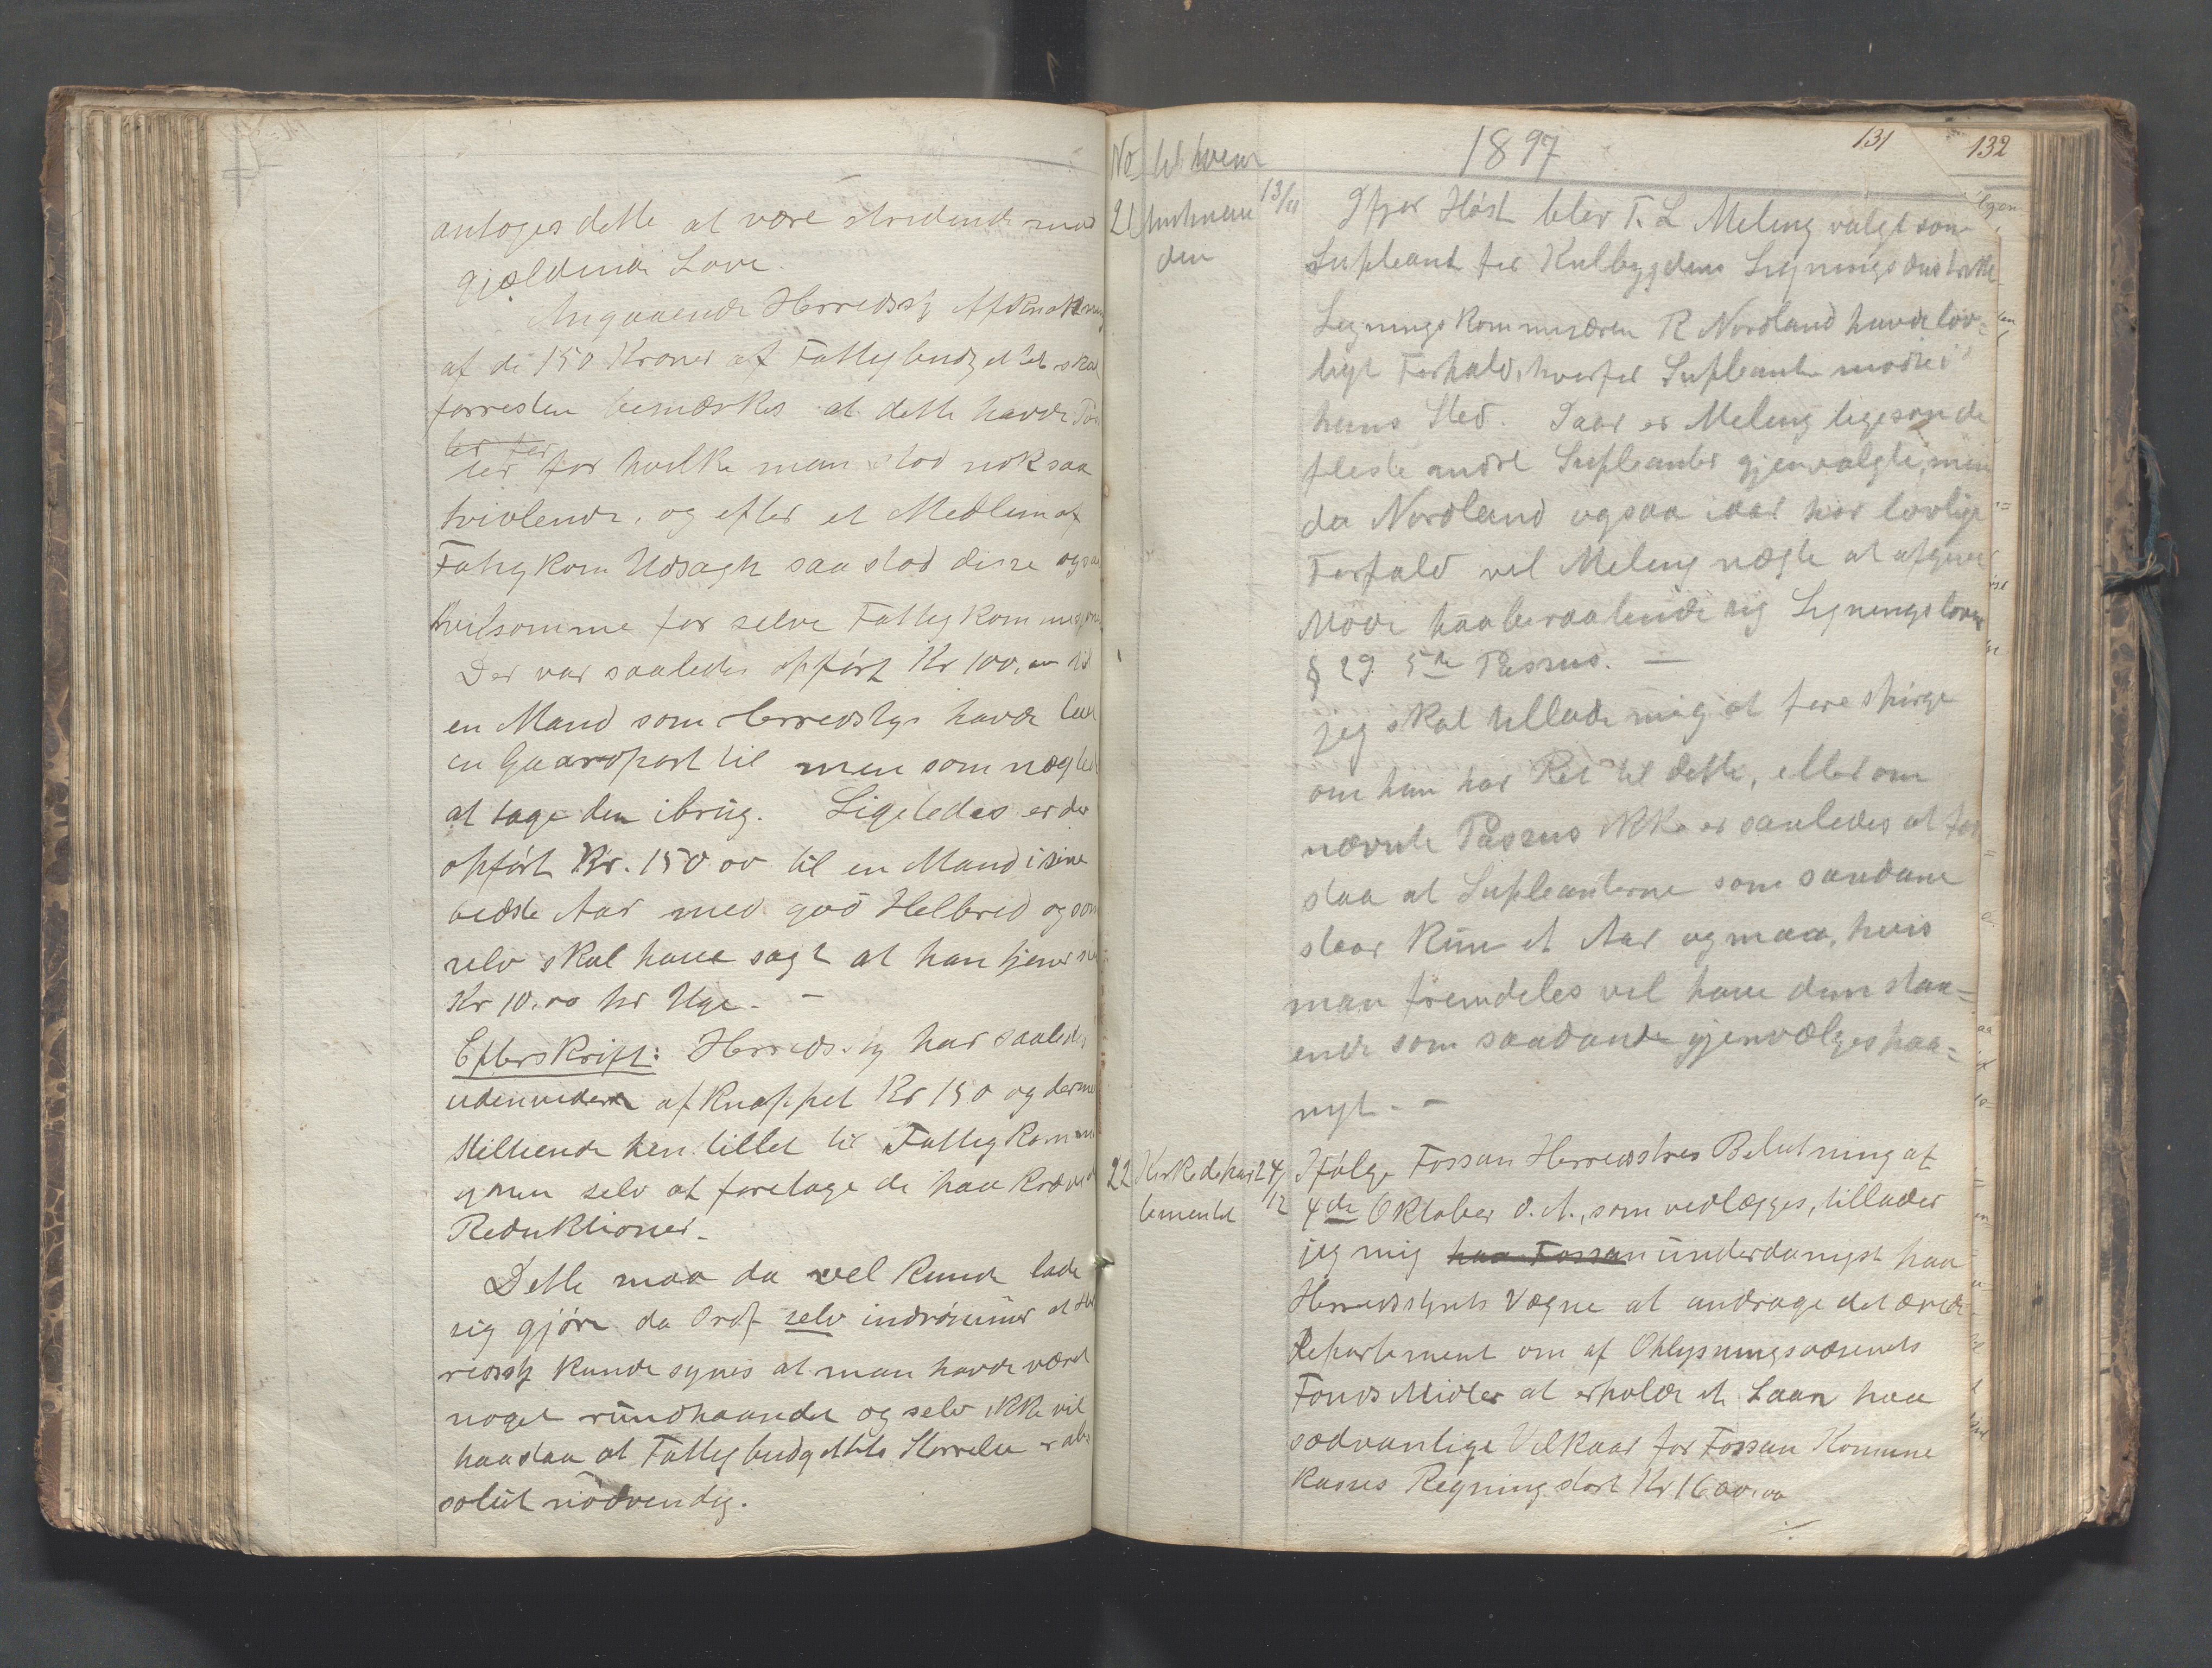 antoges dette at være stridende mod
gjældende Love.
Angaaende Herredsst Afknapning
af de 150 Kroner af Fattigbudgettet skal
forresten bemærkes at dette havde Po
ter for
ter for hvilke man stod noksaa
tvivlende, og efter et Medlem af
Fatigkom Udsagn saa stod disse ogsaa
tvilsomme for selve Fattigkommisjonen
Der var saaledes opført Kr 100,00 til
en Mand som Herredsty havde leiet
en Gaardpart til men som nægted
at tage den ibrug. Ligeledes er der
opført Kr. 150 00 til en Mand i sine
bedste Aar med god Helbred og som
selv skal have sagt at han tjener
Kr 10.00 pr Uge. –
Efterskrift: Herredsty har saaledes
udenvidere afknappet Kr 150 og dermed
stiltiende hen stillet til Fattigkommis
sjonen selv at foretage de paa krævede
Reduktioner.
Dette maa da vel kunde lade
sig gjøre da Ordf selv indrømmer at Her
redsst kunde synes at man havde været
noget rundhaandet og selv ikke vil
paastaa at Fattigbudgettets Størrelse er ab
solut nødvendig.
No til hvem 1897 131 132
21 Amtman 13/11
den
Ifjor Høst blev T. L Meling valgt som
Supleant for Kulbygdens Ligningsdistrikt
Ligningskommisæren R Nordland havde lov-
ligt Forhold, hvorfor Supleanten mødte i
hans Sted. Iaar er Meling ligesom de
fleste andre Supleanter gjenvalgte, men
da Nordland ogsaa iaar har lovlige
Forfald vil Meling nægte at afgive
Møde paaberaabende sig Ligningsloven
§ 29 5te Passus. –
jeg skal tillade mig at forespørge
om han har Ret til dette, eller om
nævnte Passus ikke er saaledes at for
staa at Supleanterne som saadane
staar kun et Aar og maa, hvis
man fremdeles vil have dem staa=
ende som saadande gjenvælges paa=
nyt. –
22 Kirkedepar 24/12
tementet
Ifølge Fossan Herredstyres Beslutning af
4de Oktober d. A., som vedlægges, tillader
jeg mig paa Fossan underdanigst paa
Herredsstyrets Vegne at andrage det ærede
Departement om af Oplysningsvæsenets
Fonds Midler at erholde et Laan paa
sædvanlige Vilkaar for Fossan Komune
Kasses Regning stort Kr 1600,00